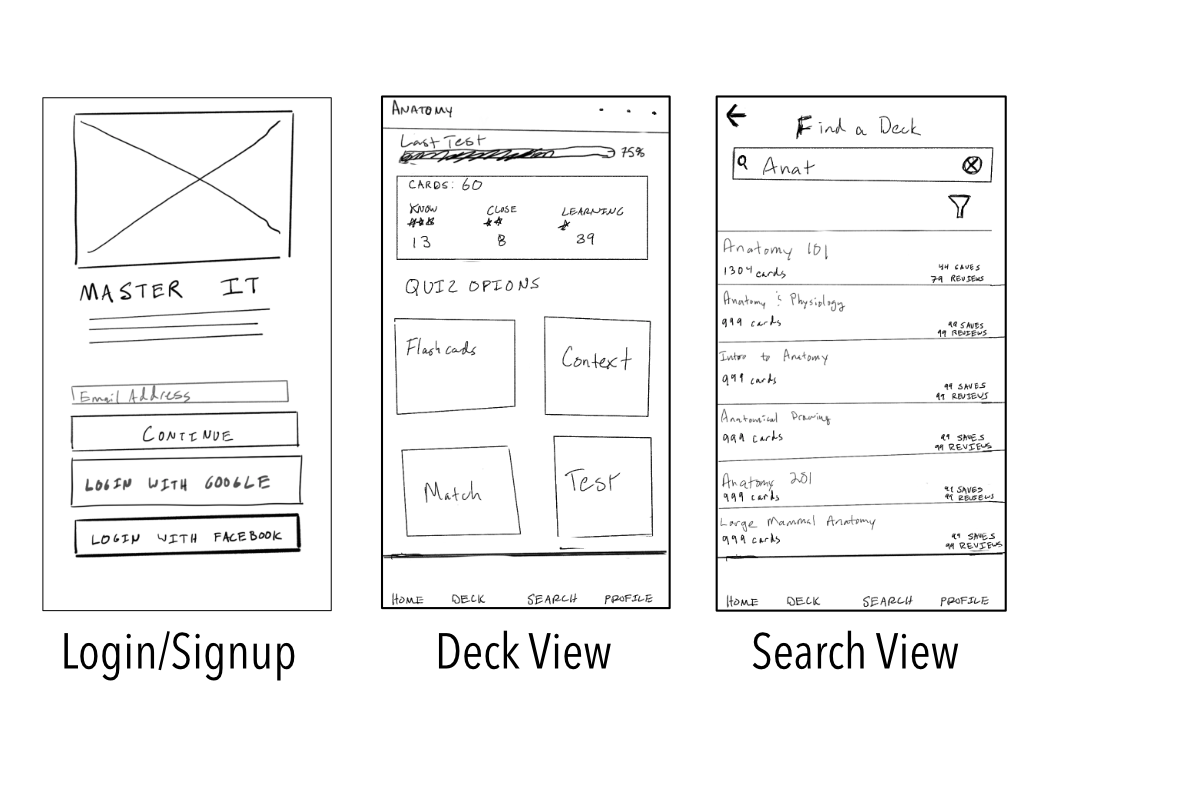 MASTER IT
Email Address
CONTINUE
LOGIN WITH GOOGLE
LOGIN WITH FACEBOOK
Login/Signup
ANATOMY
Last Test
75%
CARDS: 60
KNOW CLOSE LEARNING
13 8 39
QUIZ OPIONS
Flashcards
Context
Match
Test
HOME DECK SEARCH PROFILE
Deck View
Find a Deck
Anat
Anatomy 101
1304 cards
44 SAVES
79 REVIEWS
Anatomy & Physiology
999 cards
99 SAVES
99 REVIEWS
Intro to Anatomy
999 cards
99 SAVES
99 REVIEWS
Anatomical Drawing
999 cards
99 SAVES
99 REVIEWS
Anatomy 201
999 cards
99 SAVES
99 REVIEWS
Large Mammal Anatomy
999 cards
99 SAVES
99 REVIEWS
HOME DECK SEARCH PROFILE
Search View